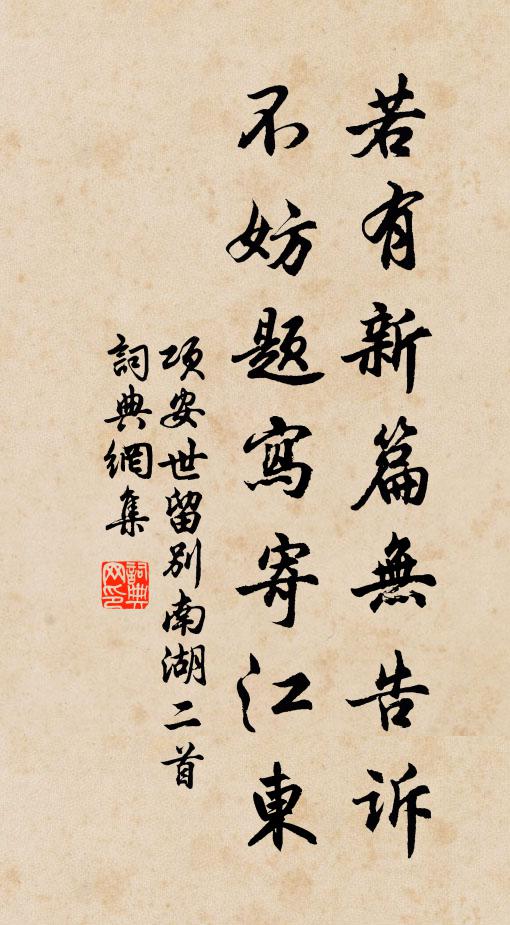 若有新篇無告訴
不妨题寫寄江東
项安世留别南湖二首
詞典網集
詞典
网印